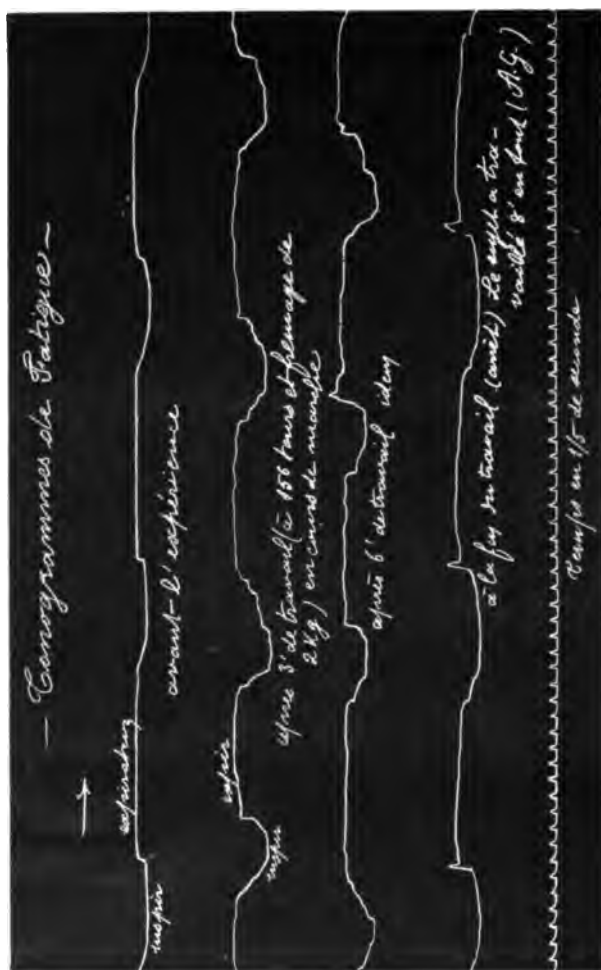 — Tonogrammes de Fatigue —
expiration
inspir
avant l'expérience
expir
inspir
après 3' de travail (à 156 tours et freinage de
2 Kg) en cours de marche
après 6' de travail idem
à la fin du travail (arrêt) Le sujet a tra-
vaillé 8' en tout (A.G.)
Temps en 1/5 de seconde